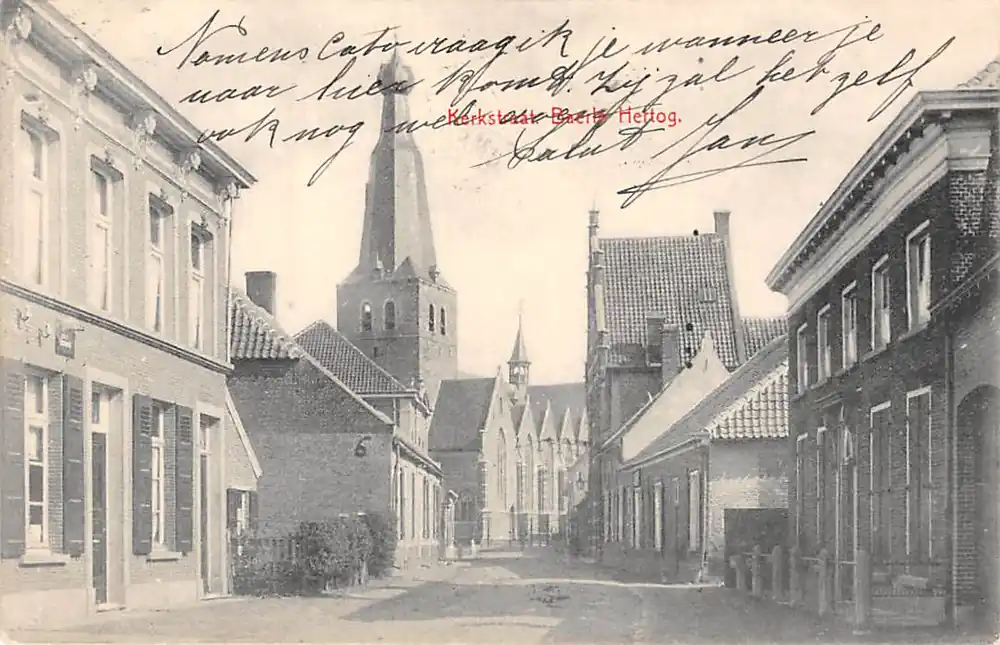 Namens Cato vraag ik je wanneer je
naar hier komt. Zij zal het zelf
ook nog wel vragen
Kerkstraat. Baerle Hertog.
Saluut Jan
6